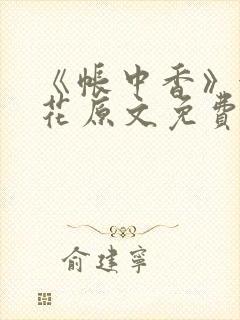 《帐中香》
花原文免费
俞建宁